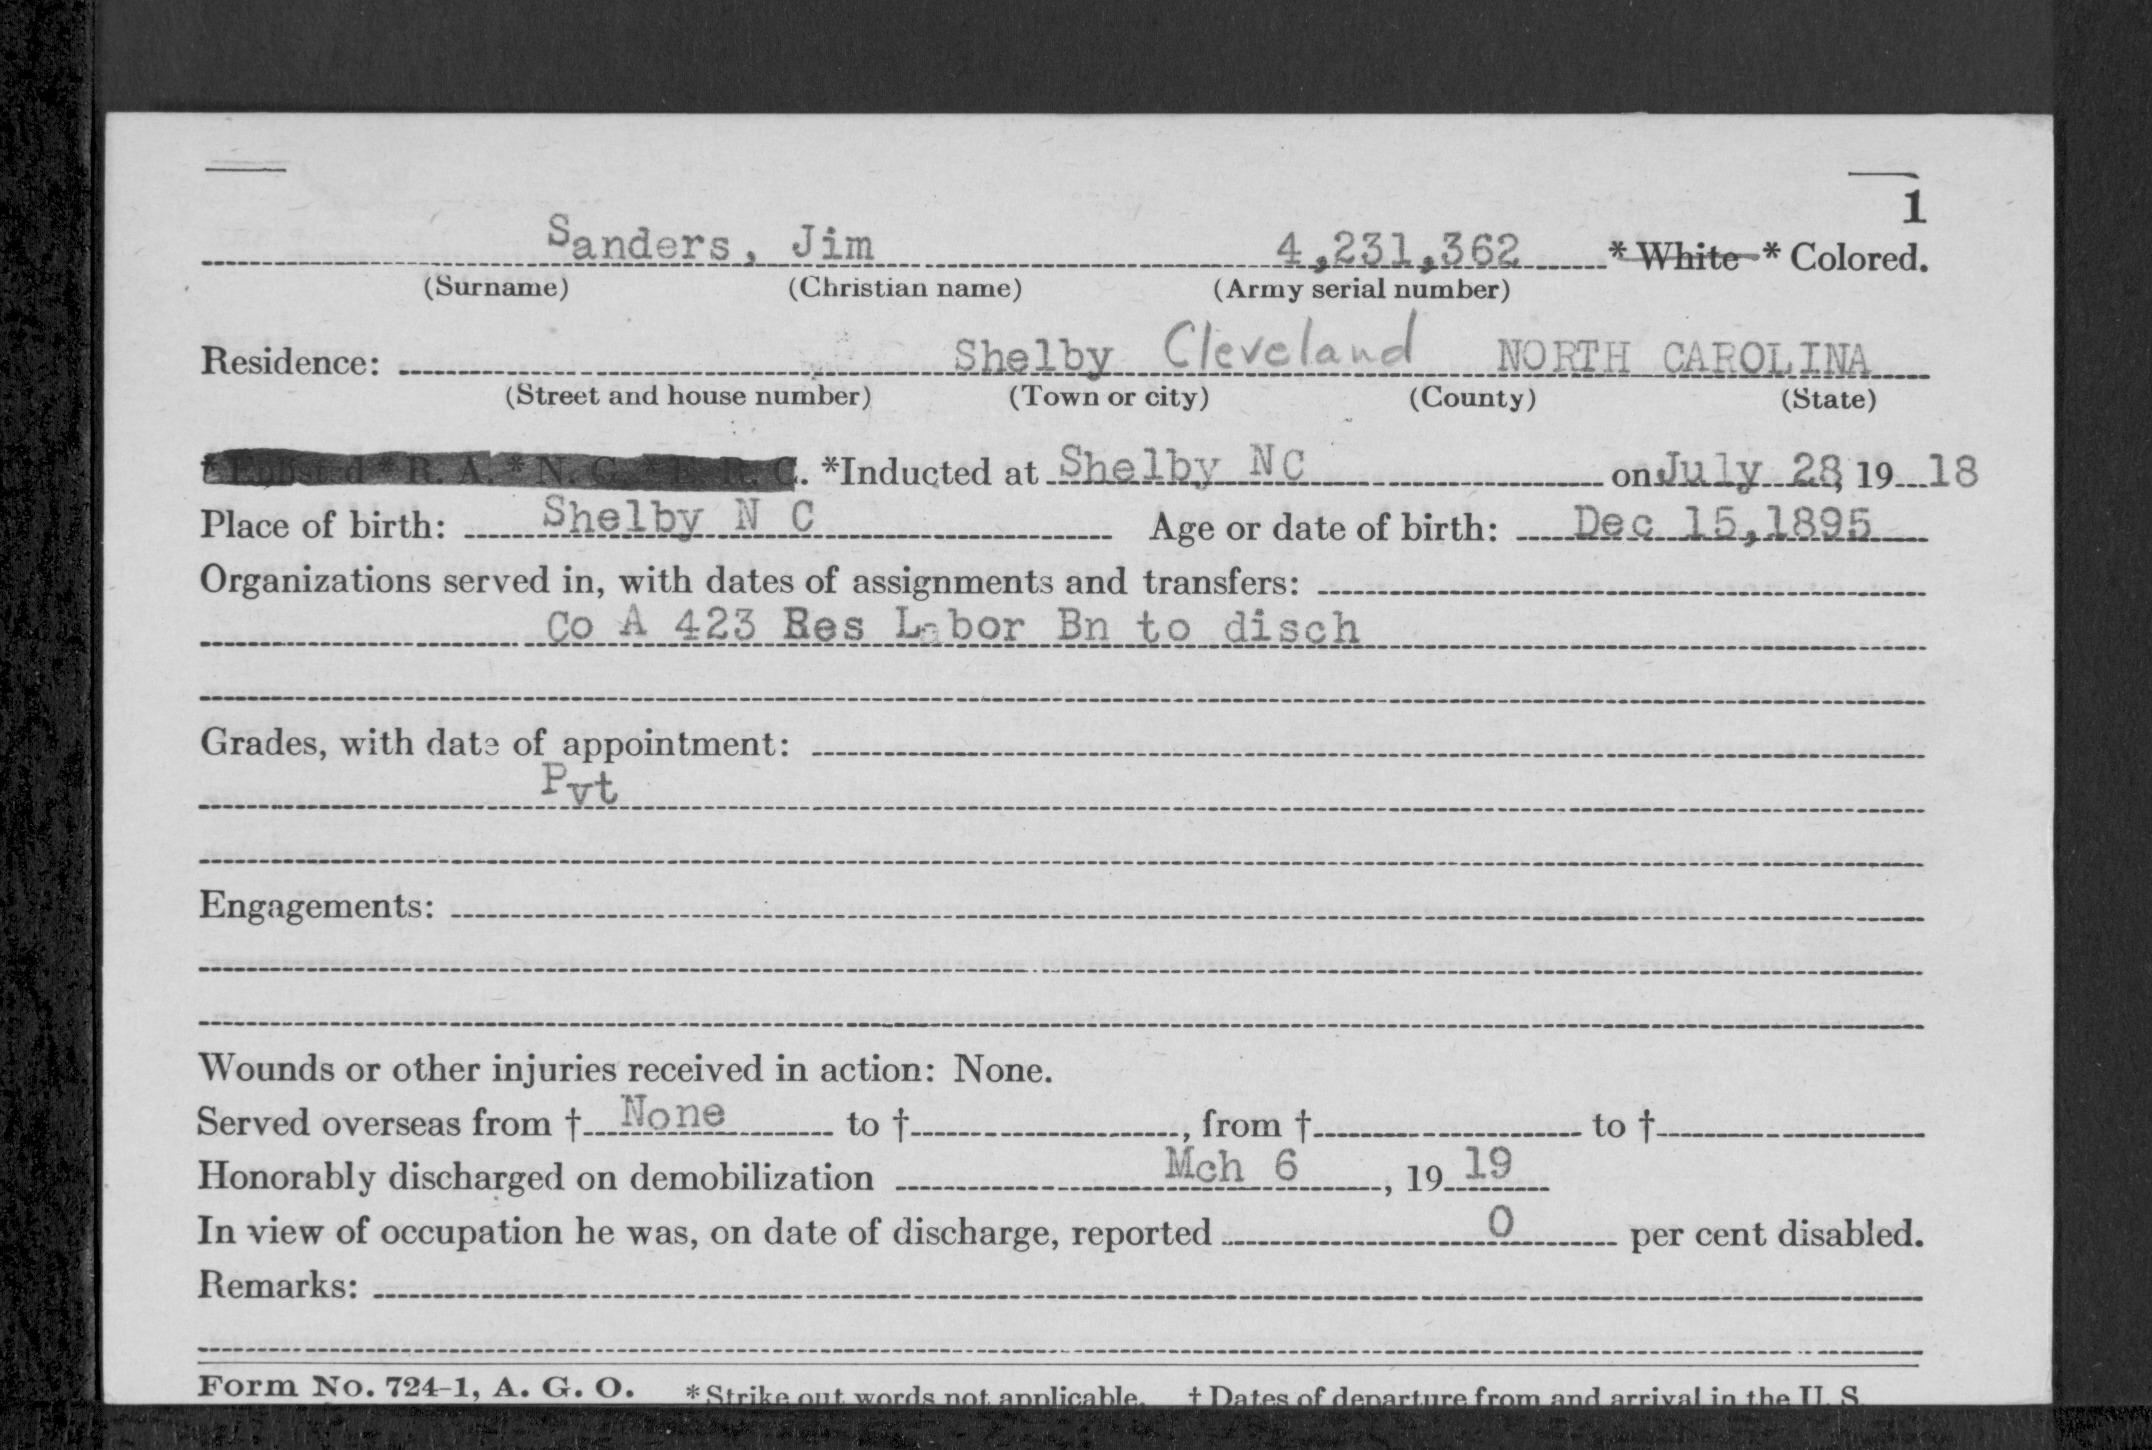 1
Sanders, Jim 4,231,362 * White * Colored.
(Surname) (Christian name) (Army serial number)
Residence: Shelby Cleveland NORTH CAROLINA
(Street and house number) (Town or city) (County) (State)
*Enlisted *R. A. *N. G. *E. R. C. *Inducted at Shelby NC on July 28, 19 18
Place of birth: Shelby N C Age or date of birth: Dec 15,1895
Organizations served in, with dates of assignments and transfers:
Co A 423 Res Labor Bn to disch
Grades, with date of appointment:
Pvt
Engagements:
Wounds or other injuries received in action: None.
Served overseas from † None to †, from † to †
Honorably discharged on demobilization Mch 6, 19 19
In view of occupation he was, on date of discharge, reported 0 per cent disabled.
Remarks:
Form No. 724-1, A. G. O. *Strike out words not applicable. † Dates of departure from and arrival in the U. S.